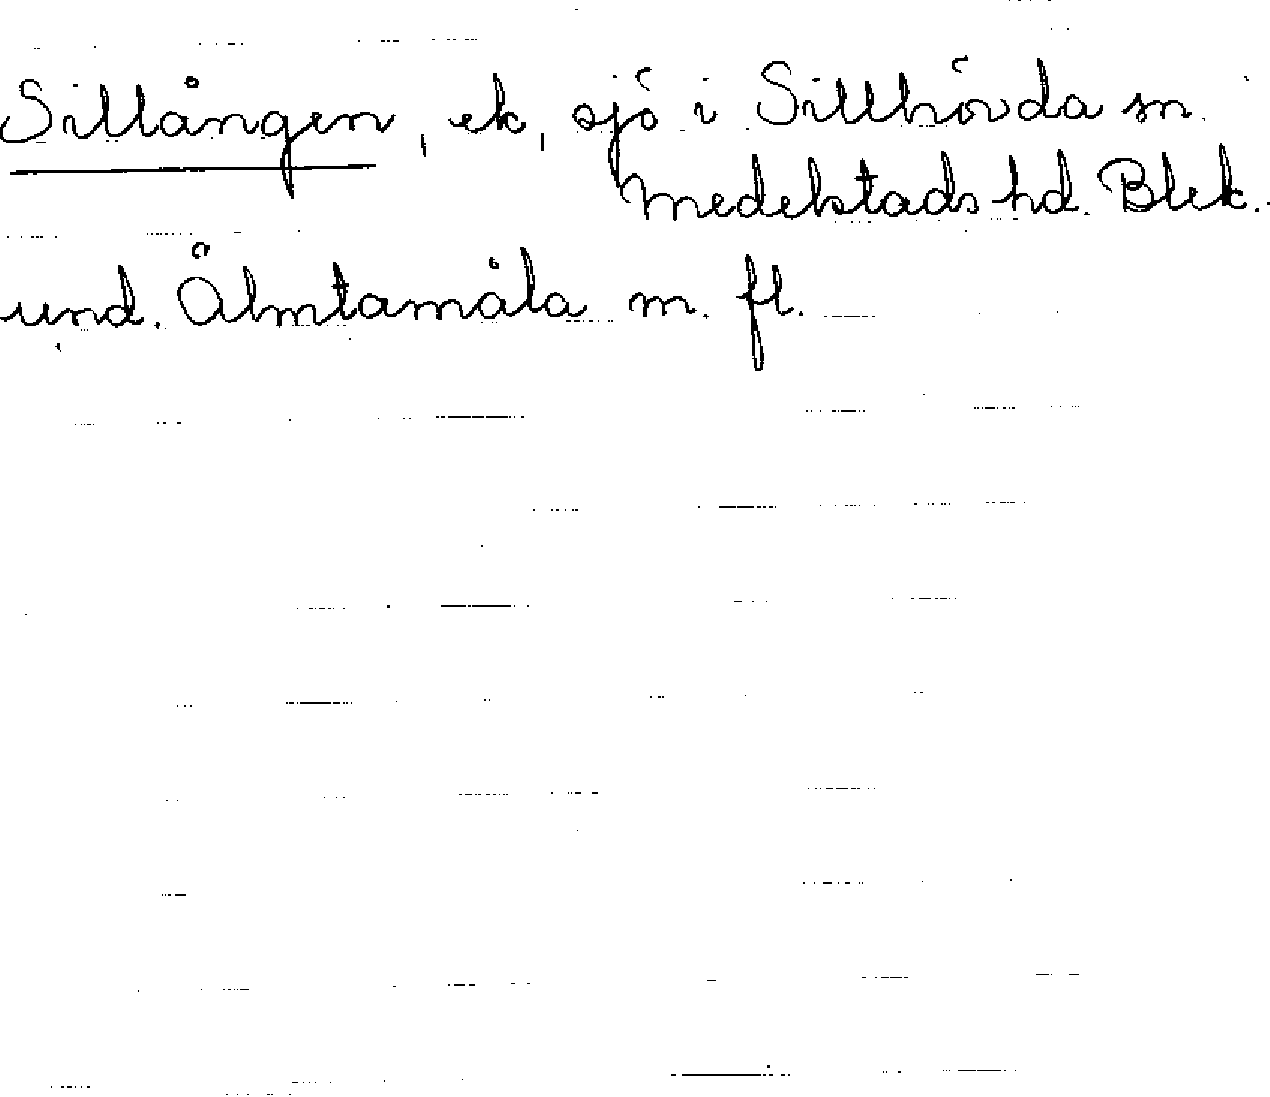 Sillången, ek, sjö i Sillhövda sn.
Medelstads hd. Blek.
und. Älmtamåla m. fl.